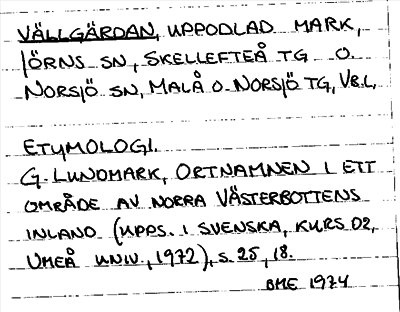 VÄLLGÄRDAN, UPPODLAD MARK,
JÖRNS SN, SKELLEFTEÅ TG O.
NORSJÖ SN, MALÅ O NORSJÖ TG, VBL.
ETYMOLOGI.
G. LUNDMARK, ORTNAMNEN I ETT
OMRÅDE AV NORRA VÄSTERBOTTENS
INLAND (UPPS. I SVENSKA, KURS D2,
UMEÅ UNIV., 1972), S. 25, 18.
BME 1974